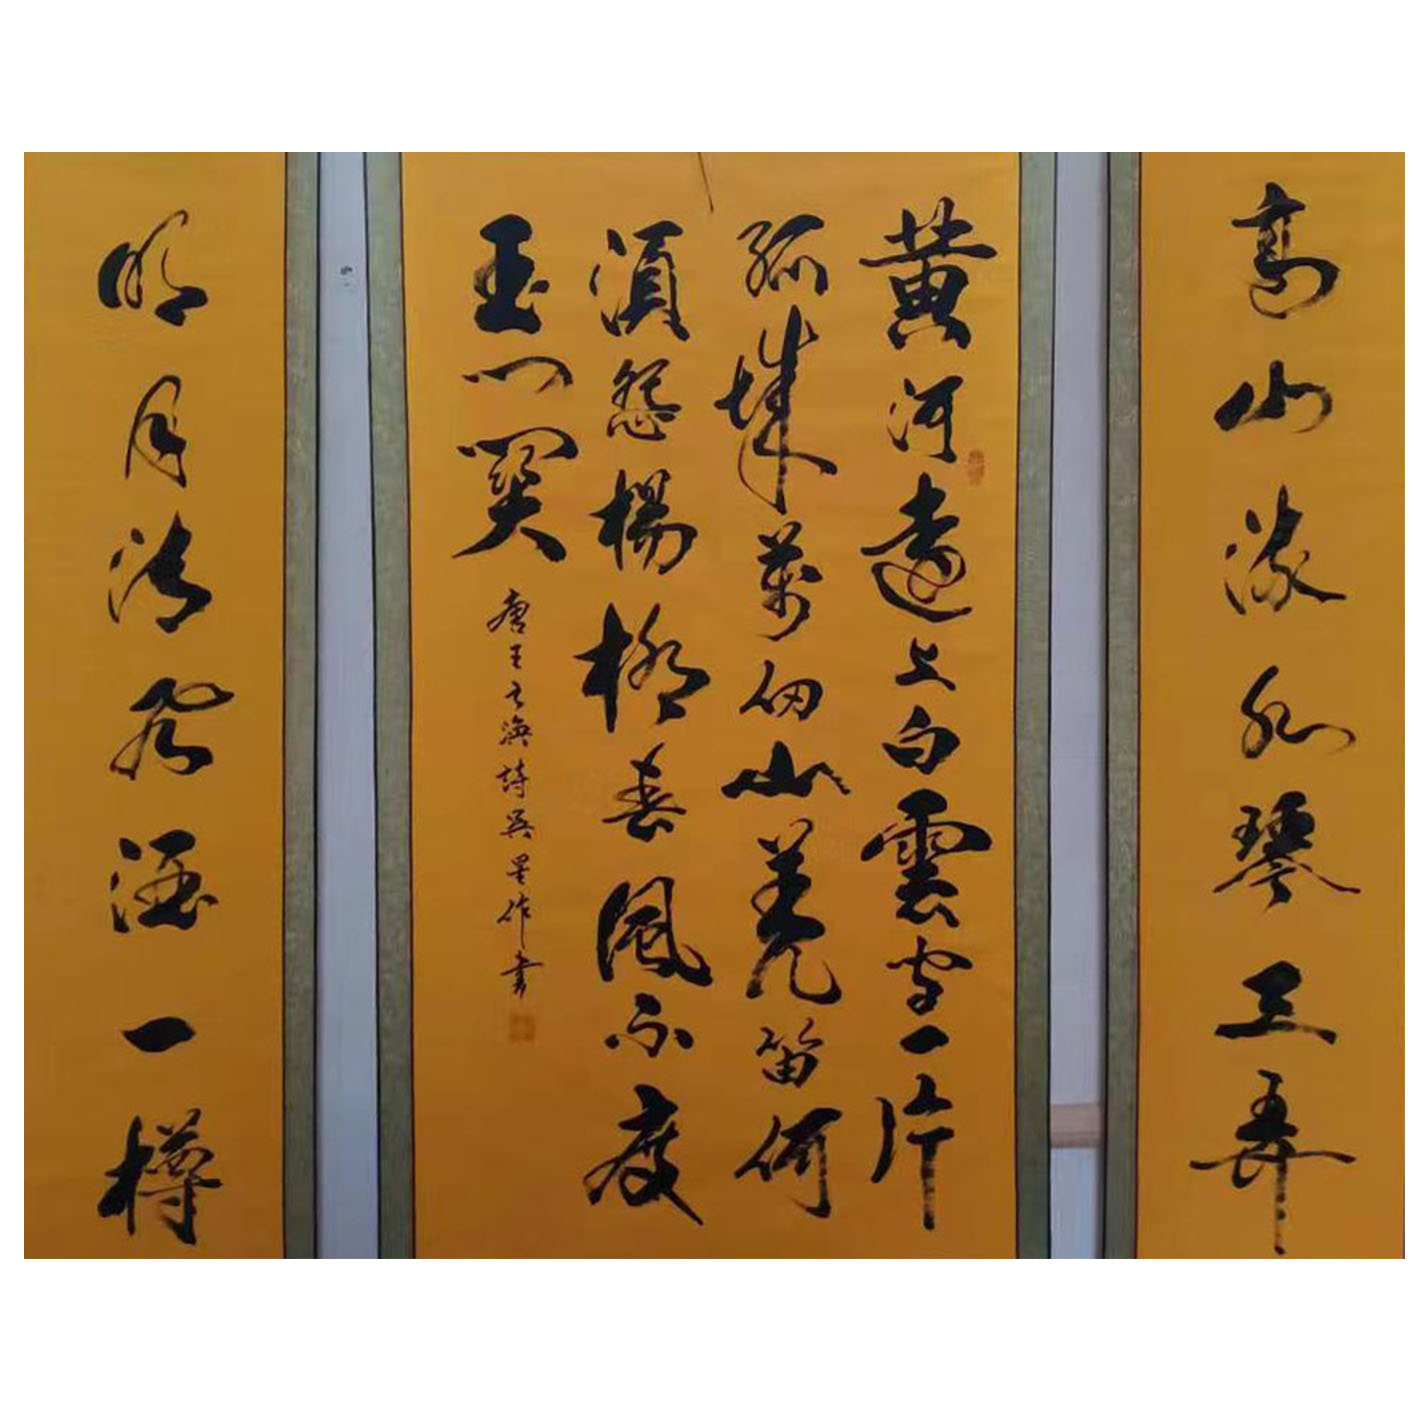 高山流水琴三弄
黄河遠上白雲間一片
孤城萬仞山羌笛何
須怨楊柳春風不度
玉門関
唐王之渙詩吳作書
明月清風酒一樽